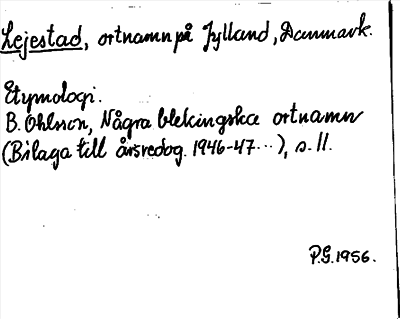 Lejestad, ortnamn på Jylland, Danmark.
Etymologi.
B. Ohlsson, Några blekingska ortnamn
(Bilaga till årsredog. 1946-47...), s. 11.
P.G. 1956.